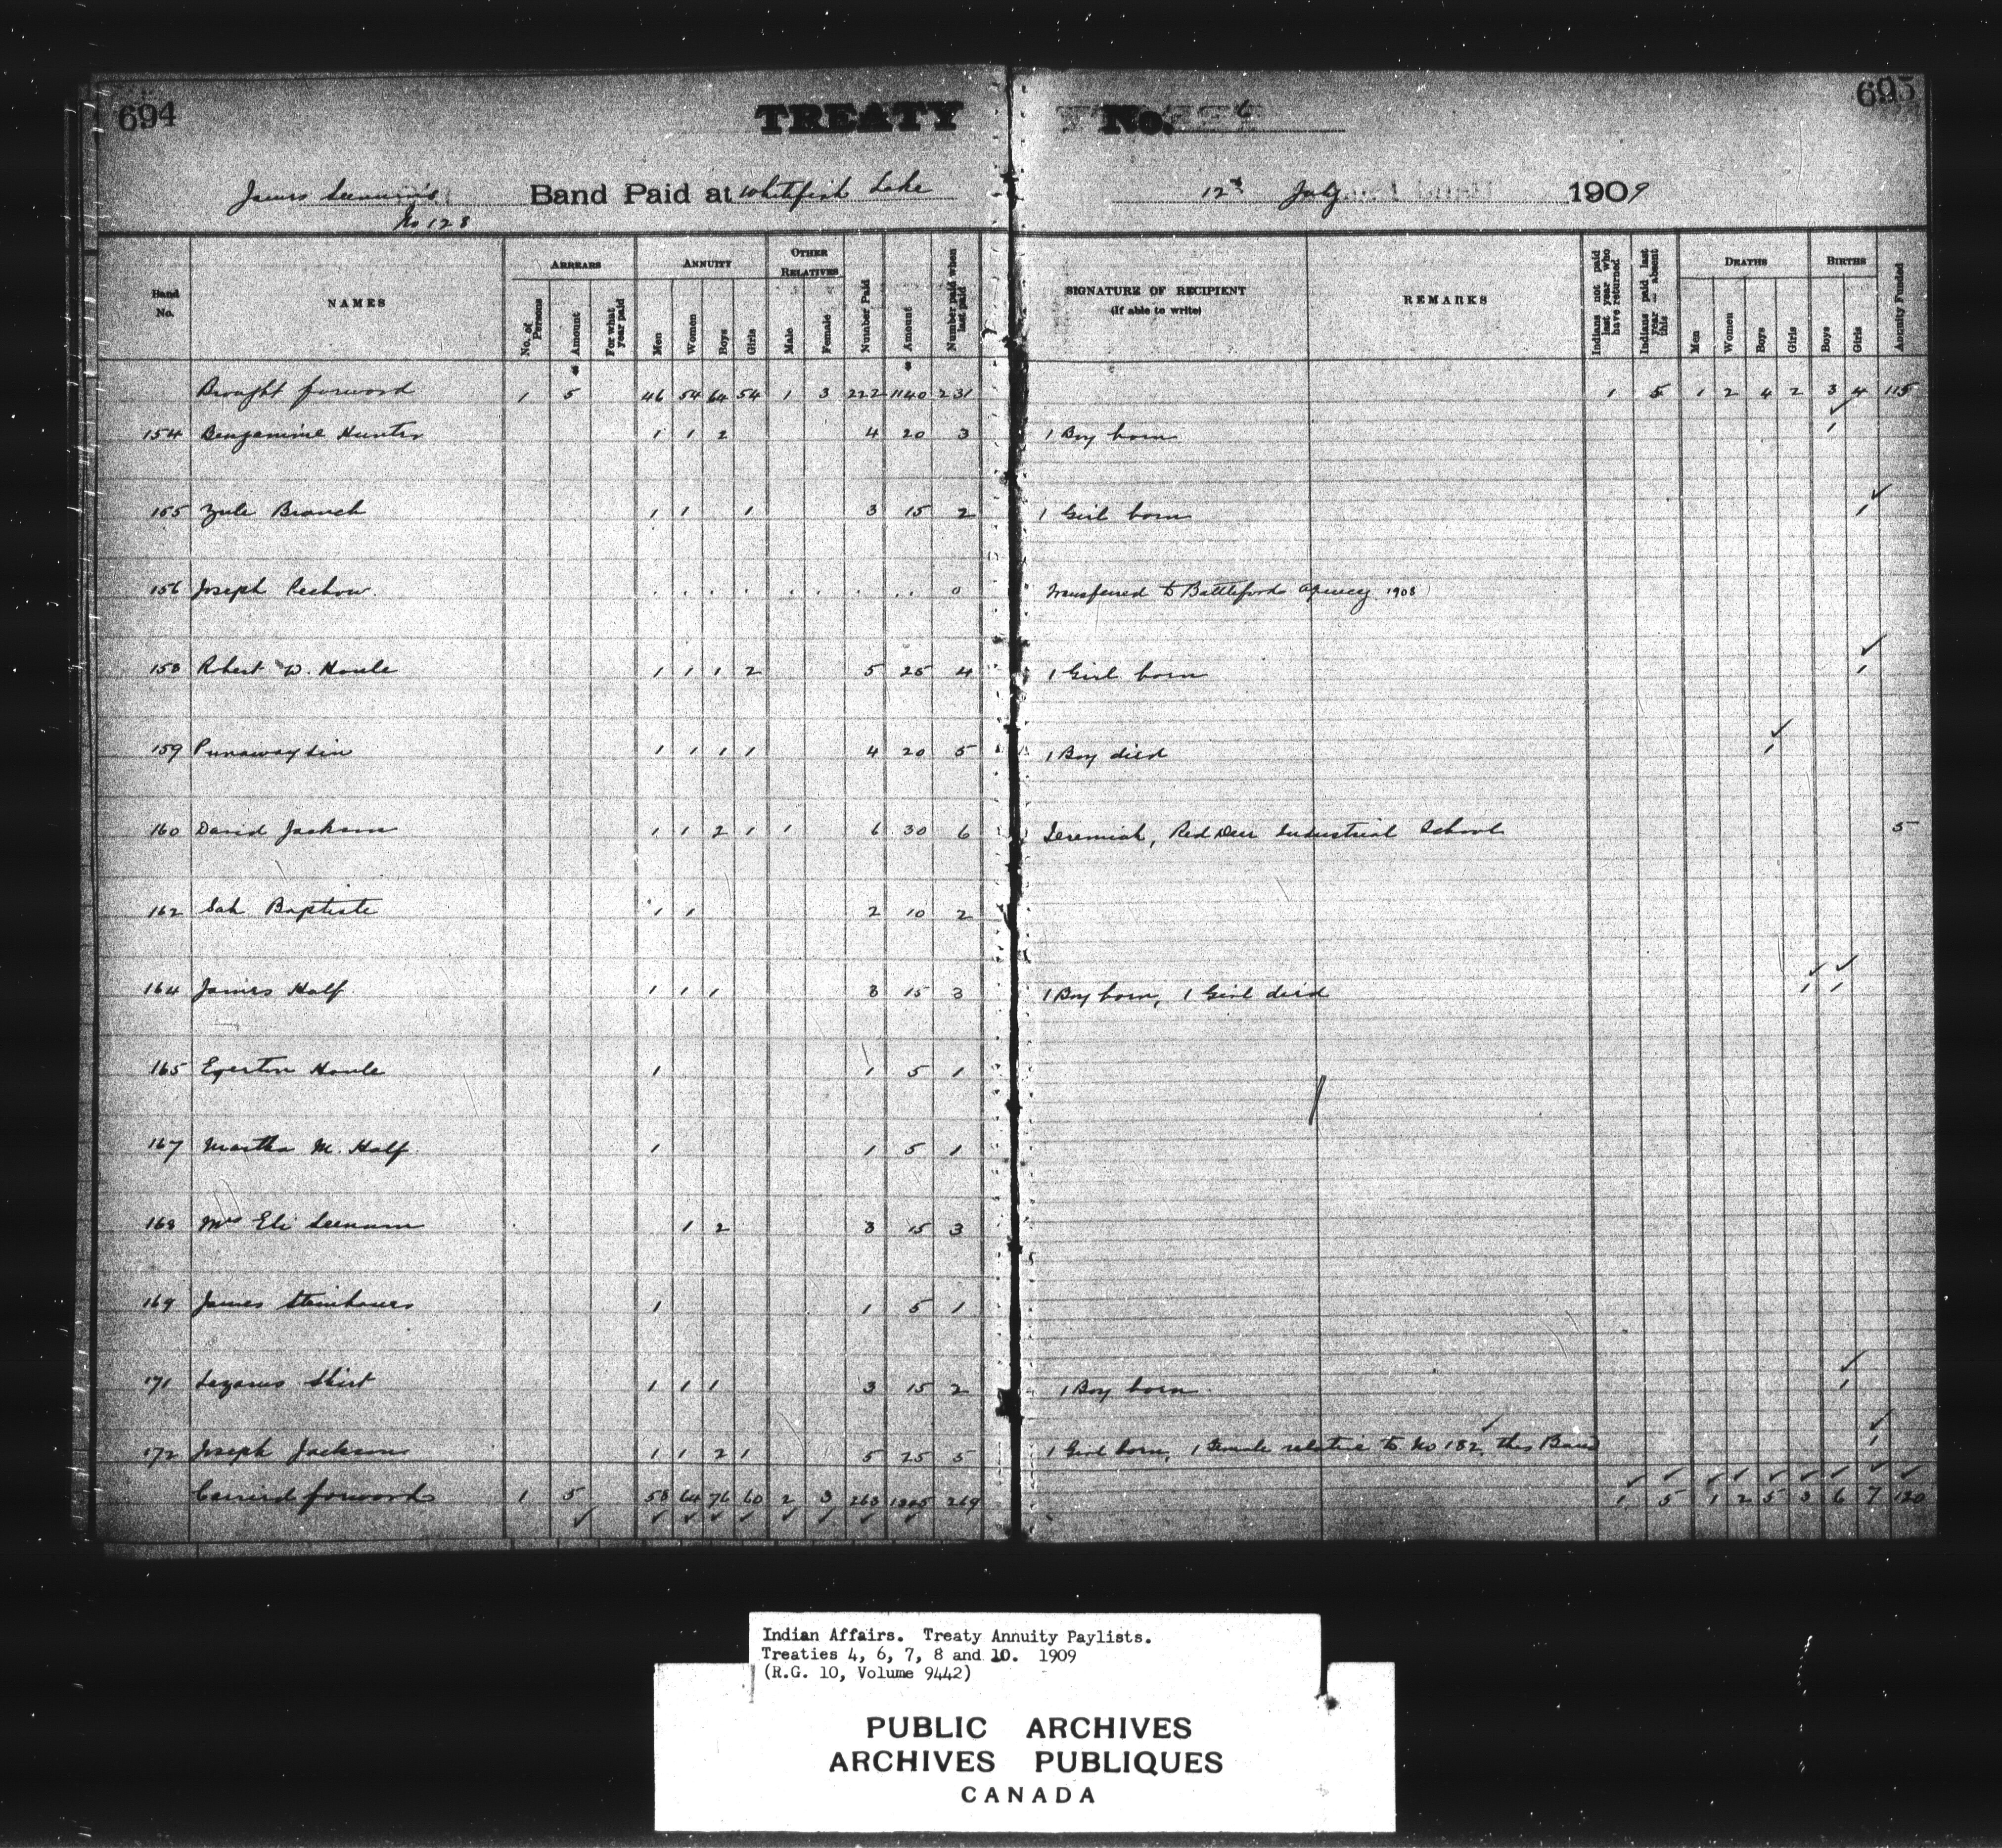 694
695
TREATY No. 6
James Seenum's Band Paid at Whitefish Lake 12th July 1909
No 128
Band No. NAMES ARREARS ANNUITY OTHER RELATIVES Number Paid Amount Number paid when last paid SIGNATURE OF RECIPIENT (If able to write) REMARKS Indians not paid last year who have returned Indians paid last year — absent this DEATHS BIRTHS Annuity Funded
No. of Persons Amount For what year paid Men Women Boys Girls Male Female Men Women Boys Girls Boys Girls
$ $
Brought forward 1 5 46 54 64 54 1 3 222 1140 231 1 5 1 2 4 2 3 4 115
154 Benjamine Hunter 1 1 2 4 20 3 1 Boy born 1
155 Zule Branch 1 1 1 3 15 2 1 Girl born 1
156 Joseph . . . . . . . . . 0 Transferred to Battleford Agency 1908
158 Robert W. Houle 1 1 1 2 5 25 4 1 Girl born 1
159 Punawaysin 1 1 1 1 4 20 5 1 Boy died 1
160 David Jackson 1 1 2 1 1 6 30 6 Jeremiah, Red Deer Industrial School 5
162 Sah Baptiste 1 1 2 10 2
164 James Half 1 1 1 3 15 3 1 Boy born, 1 Girl died 1 1
165 Egerton Houle 1 1 5 1
167 Martha M. Half 1 1 5 1
168 Mrs Eli Seenum 1 2 3 15 3
169 James Steinhauer 1 1 5 1
171 Lazarus Shirt 1 1 1 3 15 2 1 Boy born 1
172 Joseph Jackson 1 1 2 1 5 25 5 1 Girl born, 1 Female relative to No 182 this Band 1
Carried forward 1 5 58 64 76 60 2 3 263 1345 269 1 5 1 2 5 3 6 7 120
Indian Affairs. Treaty Annuity Paylists.
Treaties 4, 6, 7, 8 and 10. 1909
(R.G. 10, Volume 9442)
PUBLIC ARCHIVES
ARCHIVES PUBLIQUES
CANADA